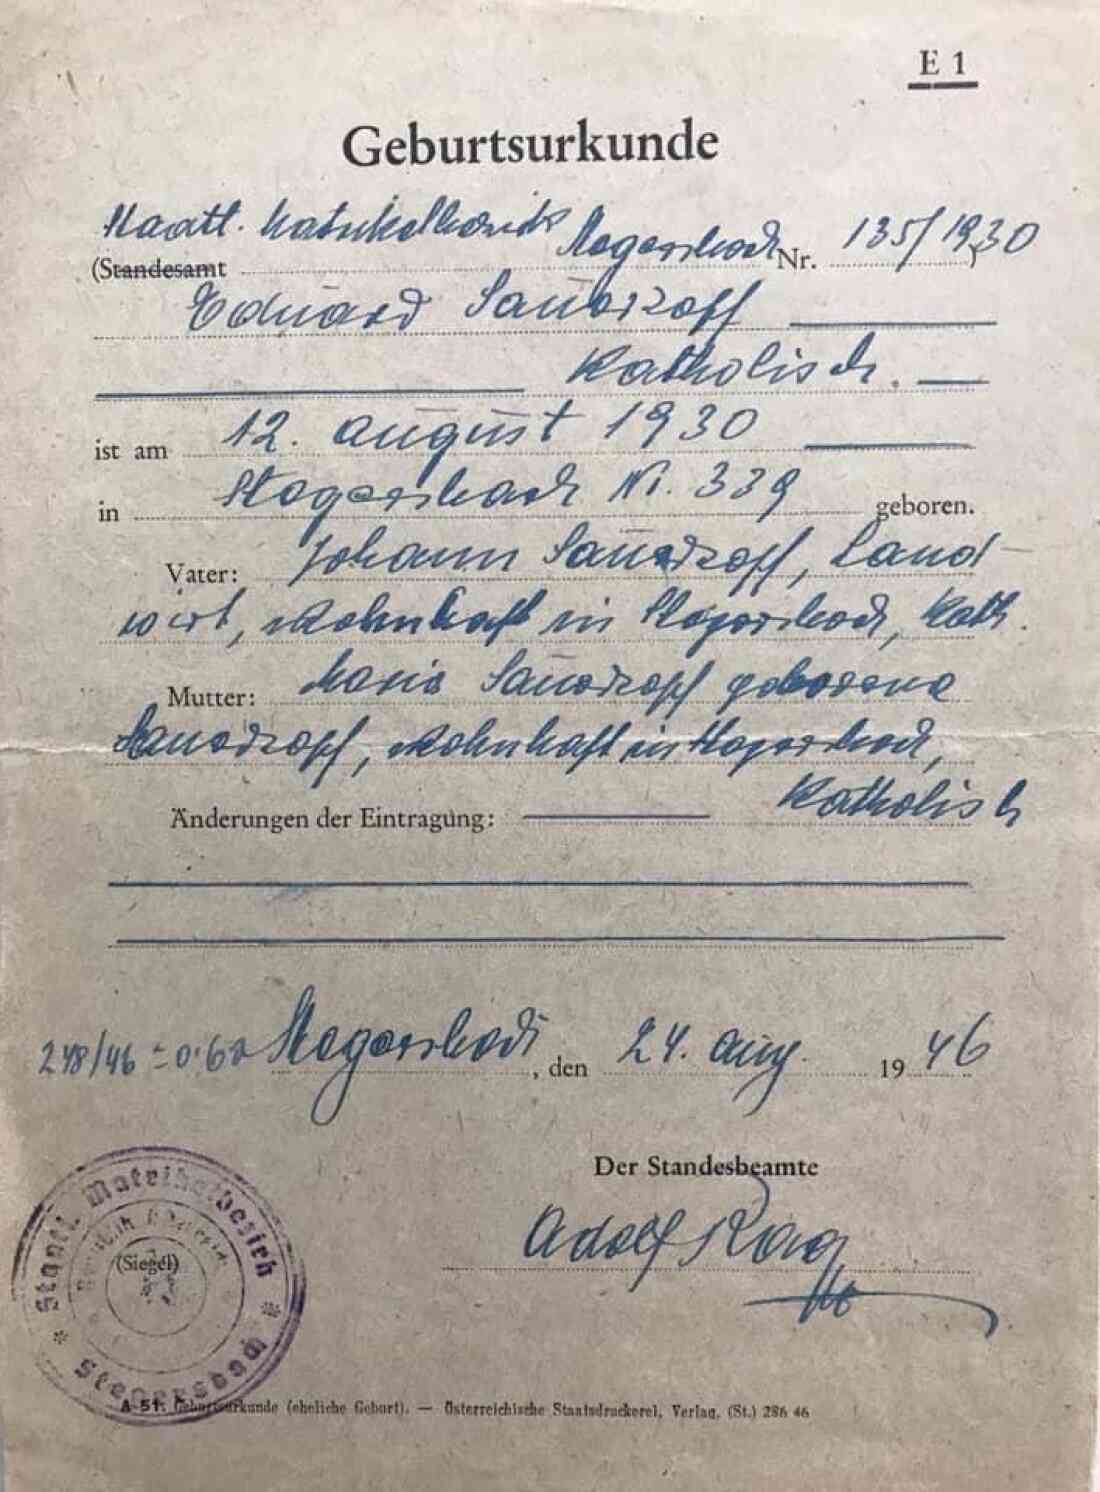 E 1
Geburtsurkunde
Staatl. Matrikelbezirk Stegersbach Nr. 135/1930
(Standesamt
Eduard Sauerzopf
Katholisch.
ist am 12. August 1930
in Stegersbach Nr. 339 geboren.
Vater: Johann Sauerzopf, Land-
wirt, wohnhaft in Stegersbach, Kath.
Mutter: Maria Sauerzopf geborene
Sauerzopf, wohnhaft in Stegersbach,
Katholisch
Änderungen der Eintragung:
248/46 = 0.60 Stegersbach, den 24. Aug. 1946
Der Standesbeamte
Adolf
Staatl. Matrikelbezirk
Republik Österreich
(Siegel)
* Stegersbach *
A 51. Geburtsurkunde (eheliche Geburt). — Österreichische Staatsdruckerei, Verlag. (St.) 286 46